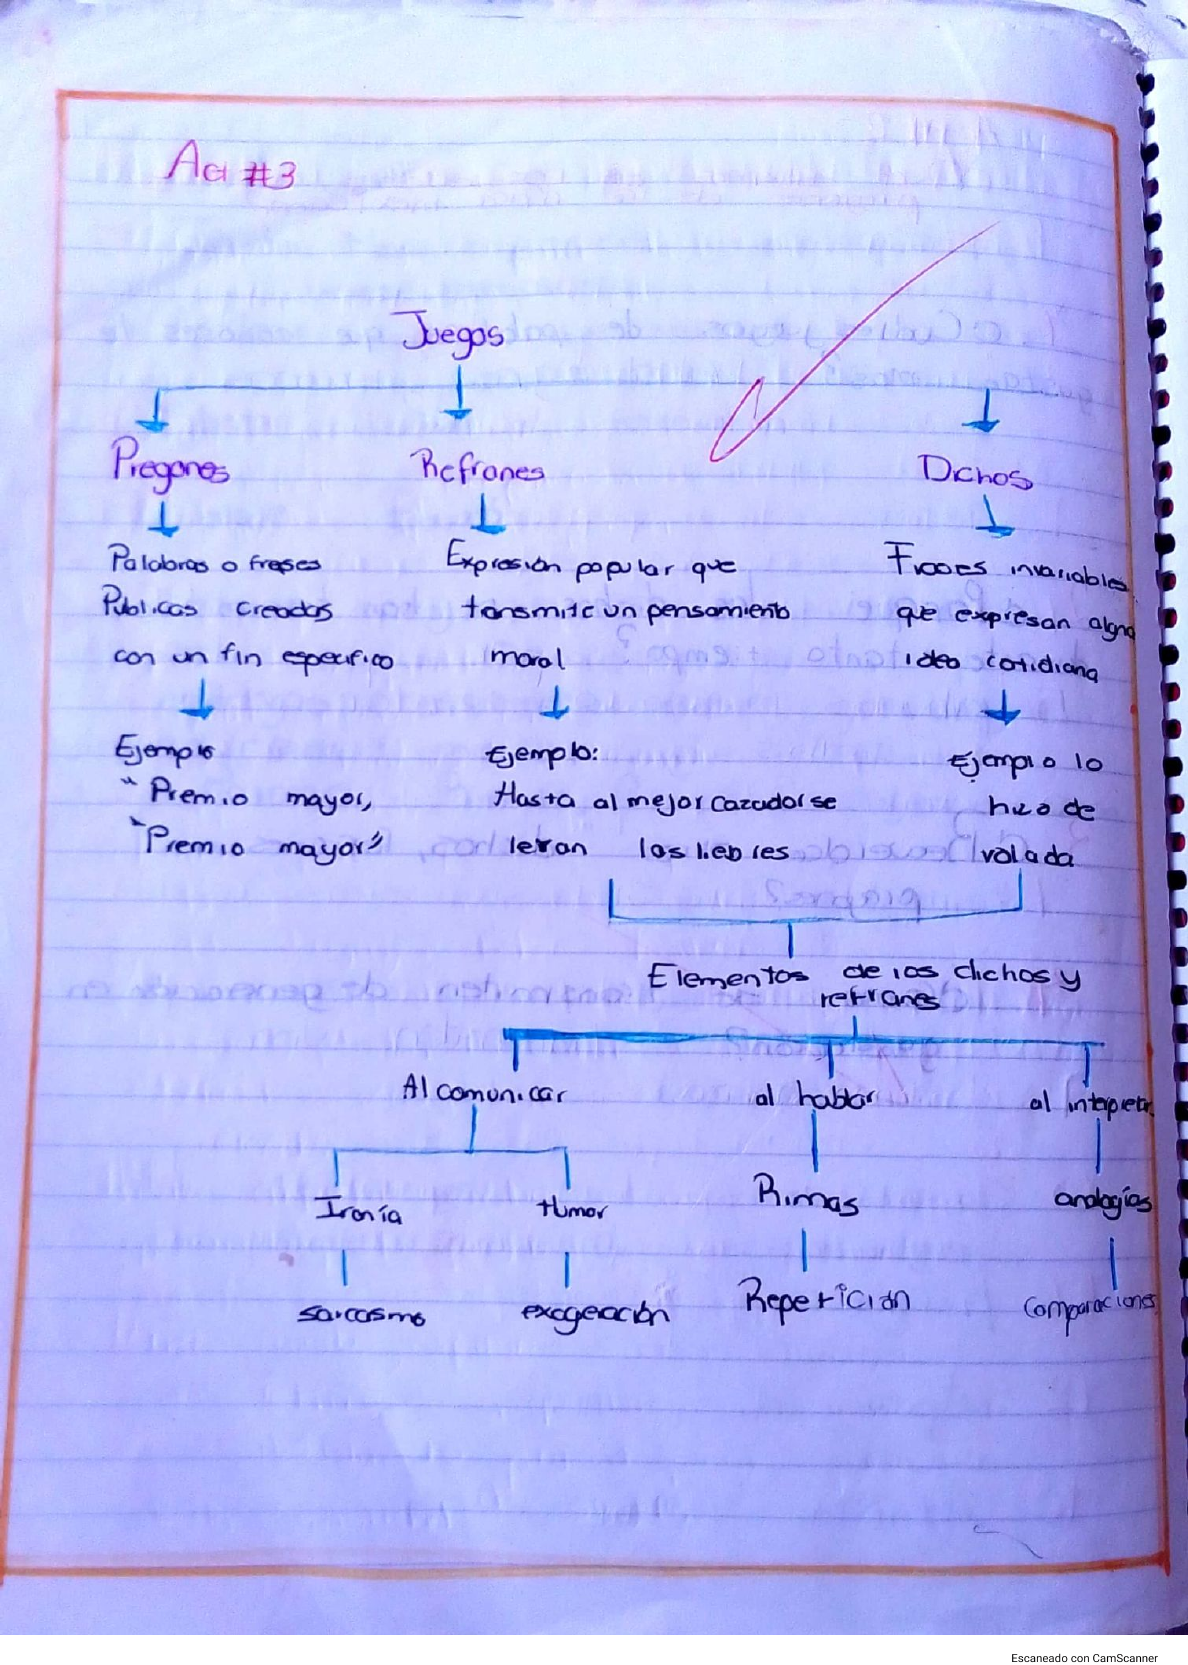 Act #3
Juegos
Pregones Refranes Dichos
Palabras o frases
Publicas creadas
con un fin especifico
Expresión popular que
transmite un pensamiento
moral
Frases invariables
que expresan alguna
idea cotidiana
Ejemplo
"Premio mayor,
"Premio mayor"
Ejemplo:
Hasta al mejor cazador se
le van las liebres
Ejemplo lo
hizo de
volada
Elementos de los dichos y
refranes
Al comunicar al hablar al interpretar
Ironía Humor Rimas analogías
sarcasmo exageración Repetición Comparaciones
Escaneado con CamScanner